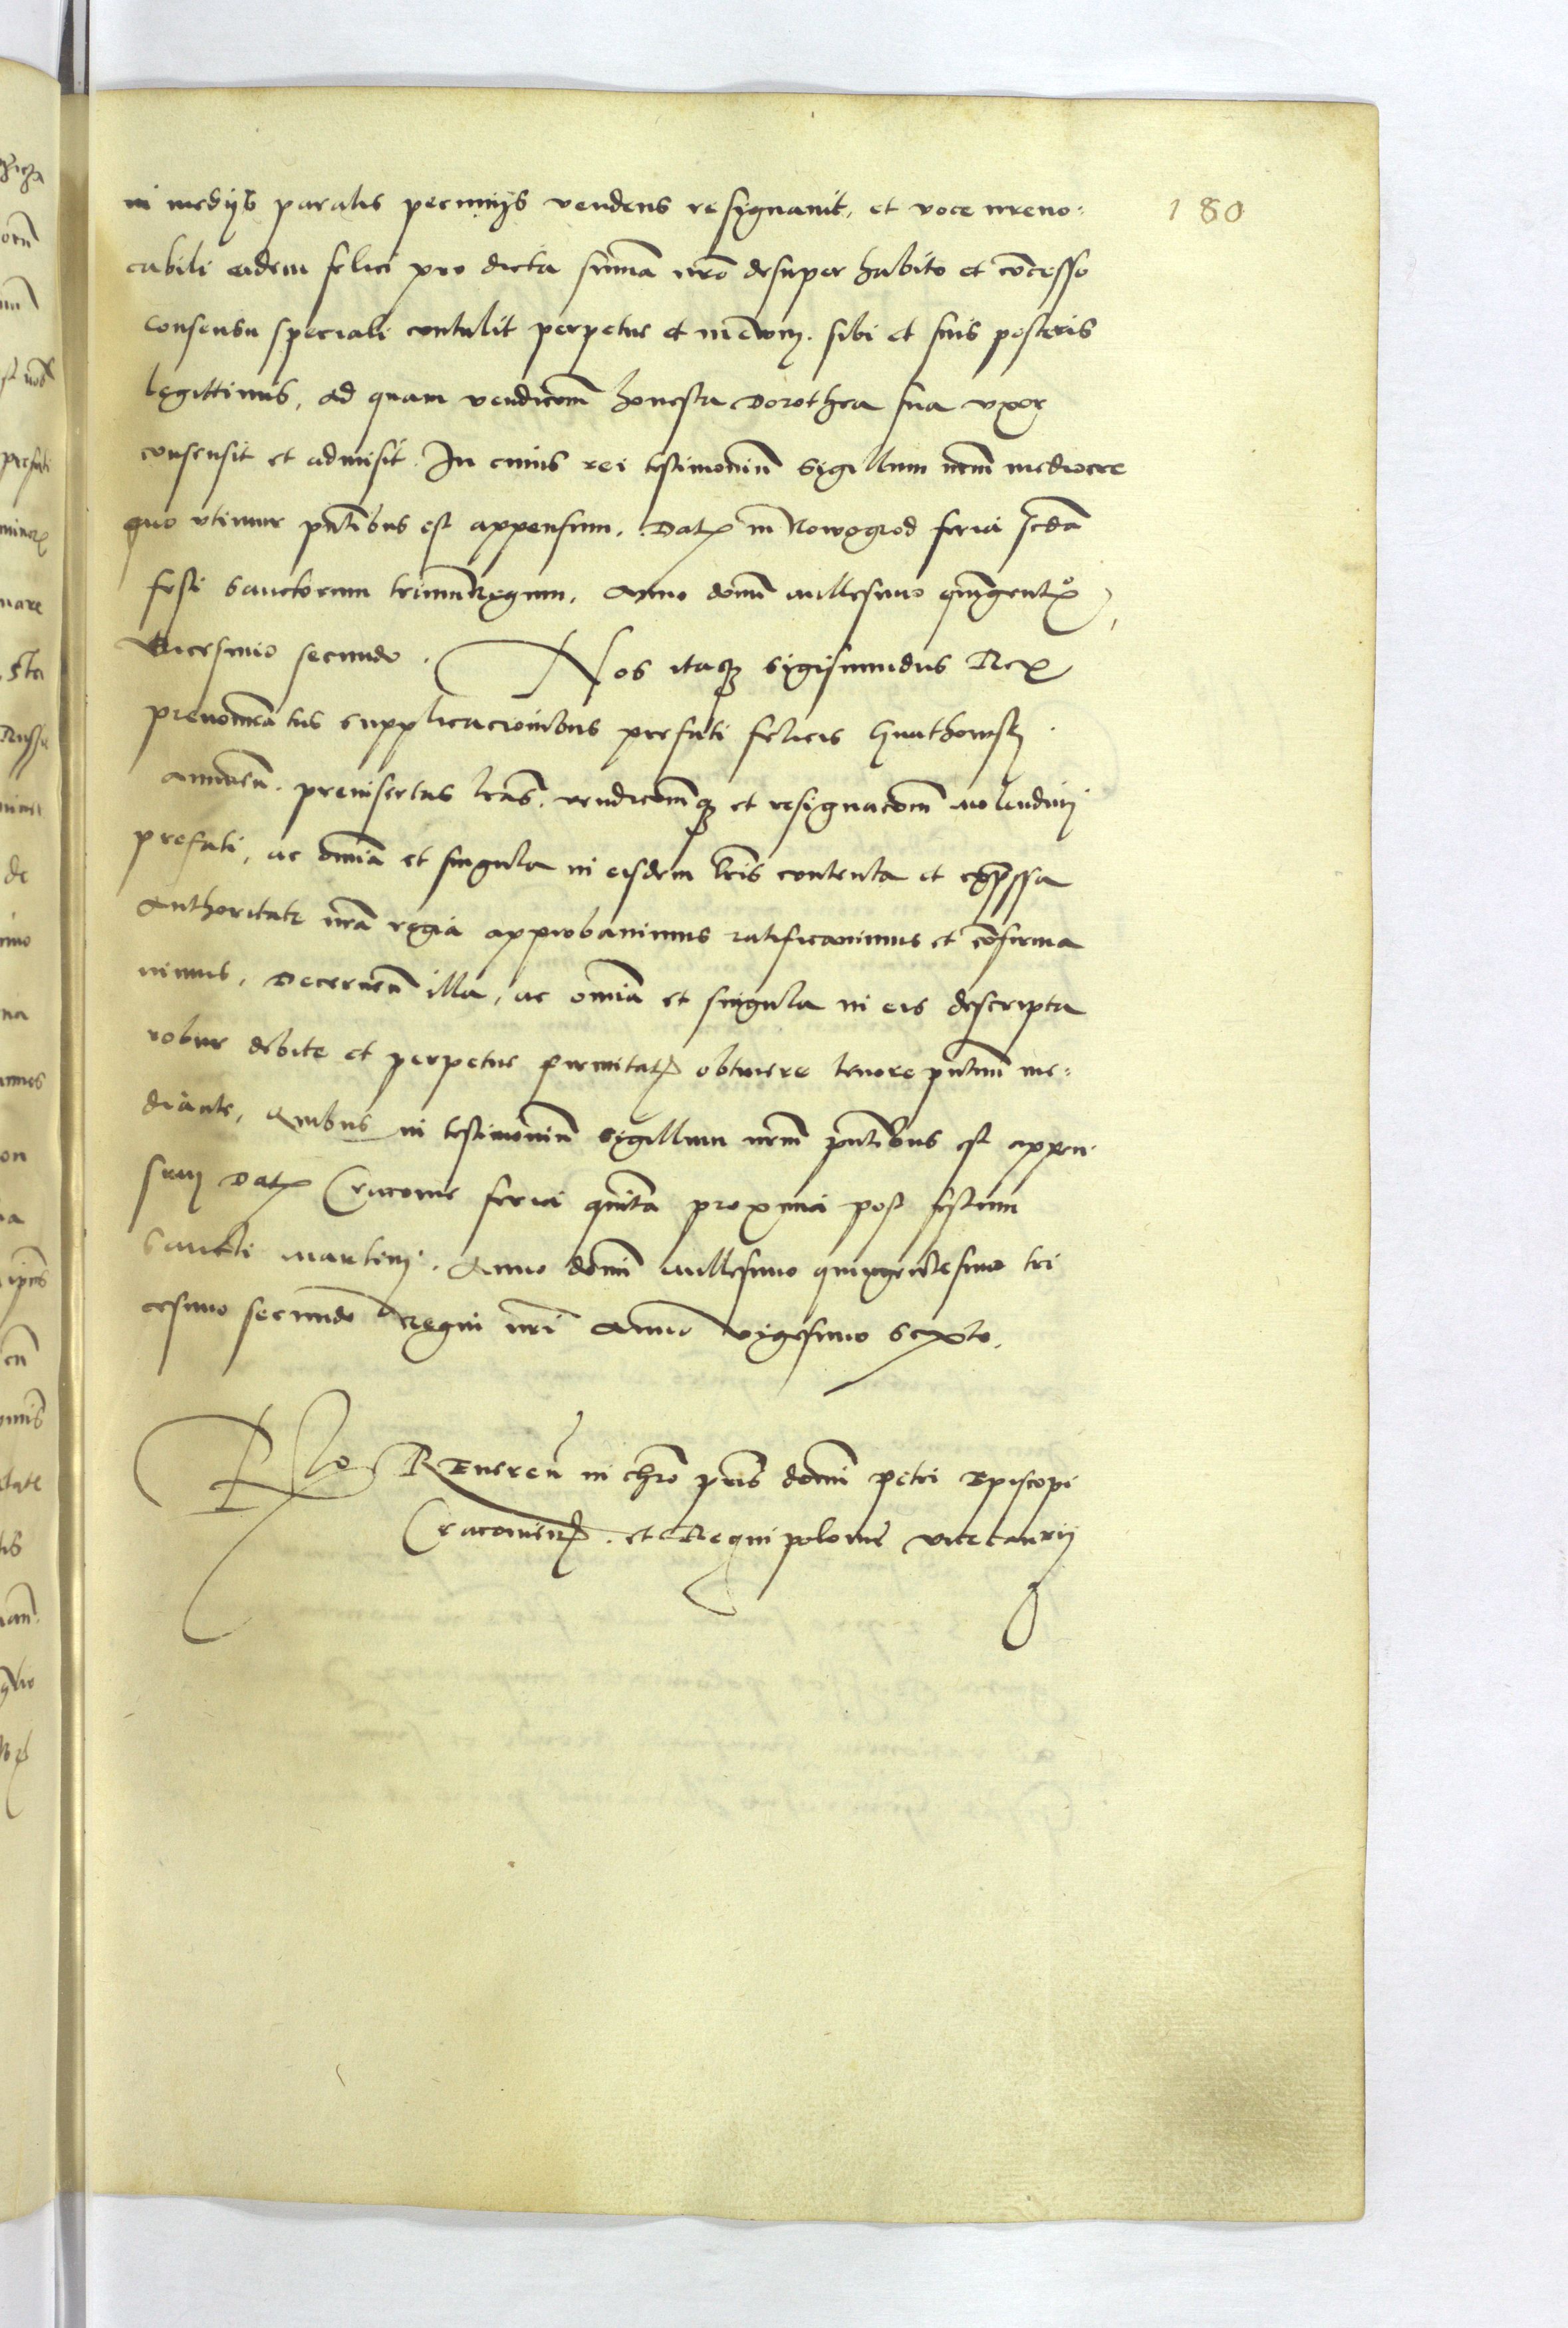 180
in medijs paratis pecunijs vendens resignavit, et voce irrevo:
cabili eidem felici pro dicta sum̄a nr̄o desuper habito et cōcesso
consensu speciali contulit perpetue et in evom. sibi et suis posteris
legittimis, ad quam vendicōm̄ honesta Dorothea sua vxor
consensit et admisit. In cuius rei testimoniū sigillum nrm̄ mediocre
quo vtimur pn̄tibus est appensum. Dat̄ in Nowogrod feria scd̄a
festi sanctorum trium Regum, Anno domī millesimo quīngentº
vicesimo secundo. Nos itaq₃ Sigismundus Rex
prenomīatus supplicacionibus prefati felicis
Annuen̄. preinsertas lr̄as. vendicōmq₃ et resignacōm̄ molendini
prefati, ac om̄ia et singula in eisdem lr̄is contenta et exp̄ssa
Authoritate nr̄a regia approbavimus ratificavimus et cōfirma
vimus, Decernen̄ illa, ac om̄ia et singula in eis descripta
robur debite et perpetue firmitat̄ obtinere tenore pn̄tium me:
diante, Quibus in testimoniū sigillum nrm̄ pn̄tibus est appen
sum Dat̄ Cracovie feria quīta proxima post festum
Sancti Martini. Anno domī millesimo quingentesimo tri
cesimo secundo Regni nrī Anno vigesimo sexto.
Rlo Reveren̄ in chrō pr̄is domī petri Episcopi
Cracovien̄. et Regni polonie vicecancrij